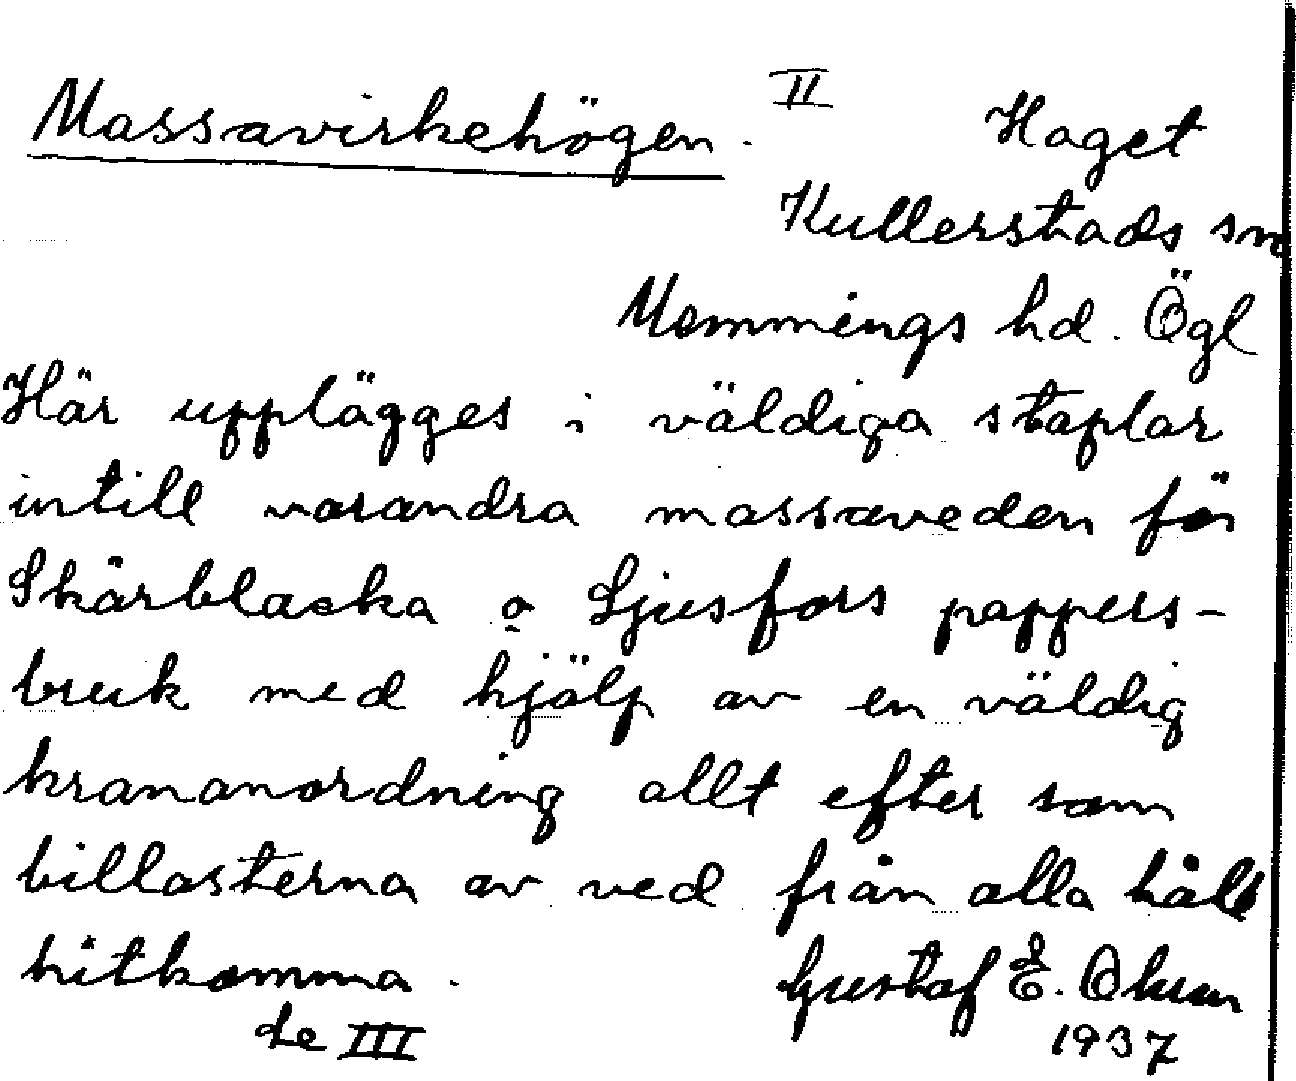 Massavirkehögen. II Haget
Kullerstads sn
Memmings hd. Ögl
Här upplägges i väldiga staplar
intill varandra massaveden för
Skärblacka o Ljusfors pappers-
bruk med hjälp av en väldig
krananordning allt efter som
billasterna av ved från alla håll
hitkomma. Gustaf E.
se III 1937